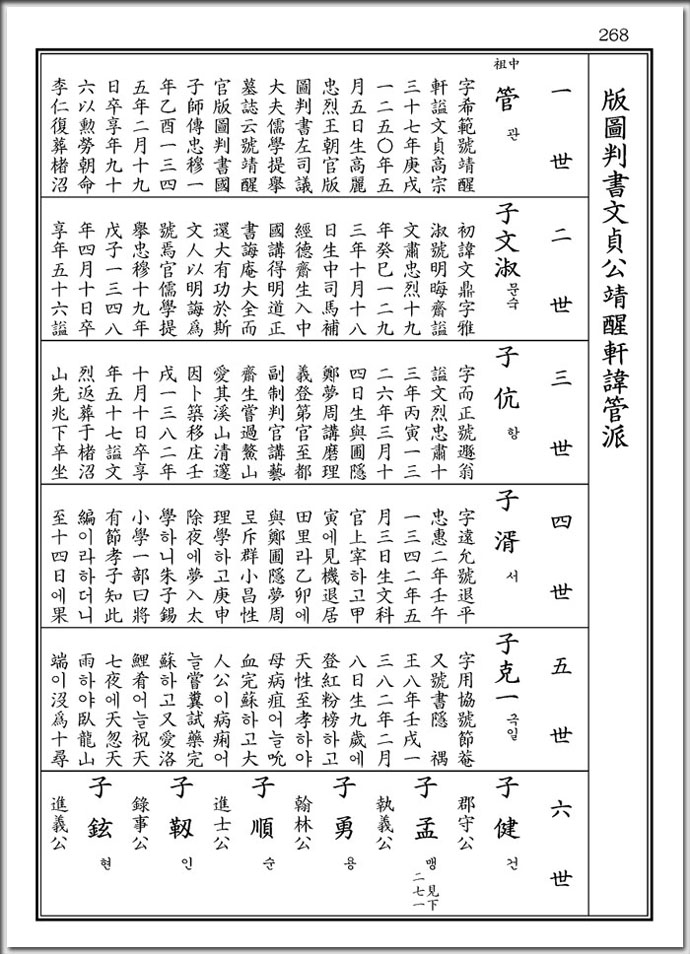 268
版圖判書文貞公靖醒軒諱管派
一世
中祖
管 관
字希範號靖醒
軒謚文貞高宗
三十七年庚戌
一二五〇年五
月五日生高麗
忠烈王朝官版
圖判書左司議
大夫儒學提擧
墓誌云號靖醒
官版圖判書國
子師傳忠穆一
年乙酉一三四
五年二月十九
日卒享年九十
六以勲勞朝命
李仁復葬楮沼
二世
子文淑 문숙
初諱文鼎字雅
淑號明晦齋謚
文肅忠烈十九
年癸巳一二九
三年十月十八
日生中司馬補
經德齋生入中
國講得明道正
書誨庵大全而
還大有功於斯
文人以明誨爲
號焉官儒學提
擧忠穆十九年
戊子一三四八
年四月十日卒
享年五十六謚
三世
子伉 항
字而正號遯翁
謚文烈忠肅十
三年丙寅一三
二六年三月十
四日生與圃隱
鄭夢周講磨理
義登第官至都
副制判官講藝
齋生嘗過鰲山
愛其溪山清邃
因卜築移庄壬
戌一三八二年
十月十日卒享
年五十七謚文
烈返葬于楮沼
山先兆下辛坐
四世
子湑 서
字遠允號退平
忠惠二年壬午
一三四二年五
月三日生文科
官上宰하고甲
寅에見機退居
田里라乙卯에
與鄭圃隱夢周
로斥群小昌性
理學하고庚申
除夜에夢入太
學하니朱子錫
小學一部曰將
有節孝子知此
編이라하더니
至十四日에果
五世
子克一 극일
字用協號節菴
又號書隱 禑
王八年壬戌一
三八二年二月
八日生九歲에
登紅粉榜하고
天性至孝하야
母病疽어늘吮
血完蘇하고大
人公이病痢어
늘嘗糞試藥完
蘇하고又愛洛
鯉肴어늘祝天
七夜에天忽天
雨하야臥龍山
端이沒爲十尋
六世
子健 건
郡守公
子孟 맹 見下二七一
執義公
子勇 용
翰林公
子順 순
進士公
子靭 인
錄事公
子鉉 현
進義公